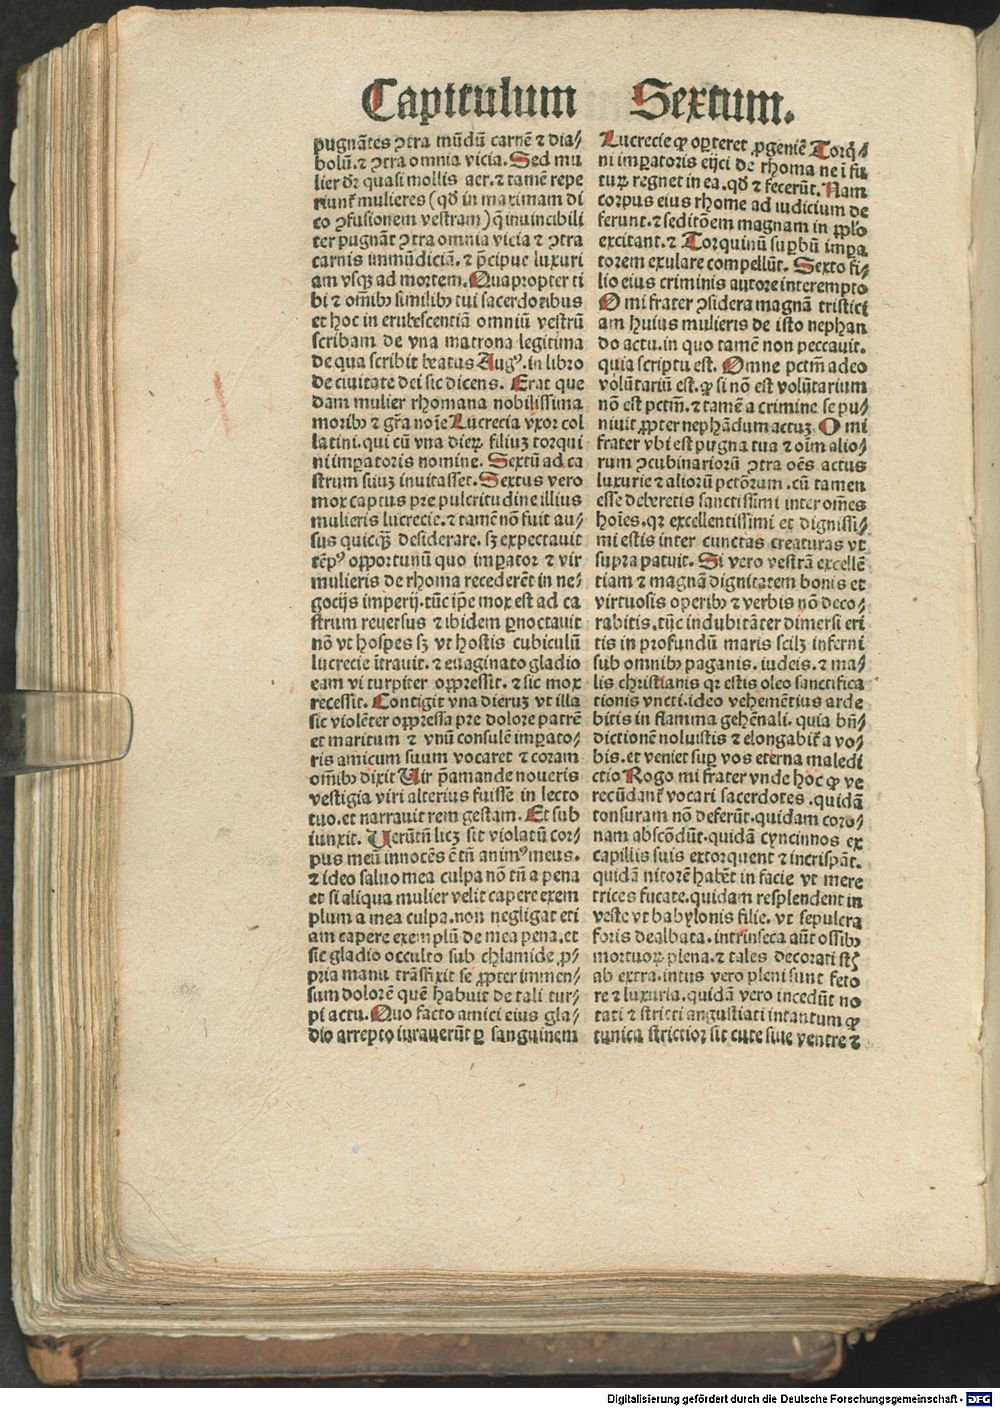 Capitulum Sextum.
pugnātes ꝯtra mūdū carnē ⁊ dia⸗
bolū. ⁊ ꝯtra omnia vicia. Sed mu
lier dr̄ quasi mollis aer. ⁊ tamē repe
riunt᷑ mulieres (qđ in maximam di
co ꝯfusionem vestram) q̄ inuincibili
ter pugnāt ꝯtra omnia vicia ⁊ ꝯtra
carnis immūdiciā. ⁊ p̄cipue luxuri
am vsqꝫ ad mortem. Quapropter ti
bi ⁊ oīmibꝰ similibꝰ tui sacerdotibus
et hoc in erubescentiā omniū vestrū
scribam de vna matrona legitima
de qua scribit beatus Augꝰ. in libro
de ciuitate dei sic dicens. Erat que
dam mulier rhomana nobilissima
moribꝰ ⁊ gr̄a noīe Lucrecia vxor col
latini. qui cū vna dieꝝ filiuꝫ torqui
ni imꝑatoris nomine. Sextū ad ca
strum suuꝫ inuitasset. Sextus vero
mox captus pre pulcritudine illius
mulieris lucrecie. ⁊ tamē nō fuit au⸗
sus quicqꝫ desiderare. sꝫ expectauit
tēpꝰ oportunū quo imꝑator ⁊ vir
mulieris de rhoma recederēt in ne⸗
gocijs imperij. tūc ip̄e mox est ad ca
strum reuersus ⁊ ibidem ꝑnoctauit
nō vt hospes sꝫ vt hostis cubiculū
lucrecie ītrauit. ⁊ euaginato gladio
eam vi turpiter oppressit. ⁊ sic mox
recessit. Contigit vna dieruꝫ vt illa
sic violēter oppressa pre dolore patrē
et maritum ⁊ vnū consulē imperato⸗
ris amicum suum vocaret ⁊ coram
oīmibꝰ dixit Uir p̄amande noueris
vestigia viri alterius fuisse in lecto
tuo. et narrauit rem gestam. Et sub
iunxit. Uerūtn̄ licꝫ sit violatū cor⸗
pus meū innocēs ē tn̄ animꝰ meus.
⁊ ideo saluo mea culpa nō tn̄ a pena
et si aliqua mulier velit capere exem
plum a mea culpa. non negligat eti
am capere exemplū de mea pena. et
sic gladio occulto sub chlamide ꝓ⸗
pria manu trāsfixit se ꝓpter immen⸗
sum dolorē quē habuit de tali tur⸗
pi actu. Quo facto amici eius gla⸗
dio arrepto iurauerūt ꝑ sanguinem
Lucrecie ꝙ oporteret ꝓgeniē Torq̄⸗
ni imꝑatoris eijci de rhoma ne ī fu
tuꝝ regnet in ea. qđ ⁊ fecerūt. Nam
corpus eius rhome ad iudicium de
ferunt. ⁊ seditōem magnam in ꝓplo
excitant. ⁊ Torquinū suꝑbū imꝑa
torem exulare compellūt. Sexto fi⸗
lio eius criminis autore interempto
O mi frater ꝯsidera magnā tristici
am huius mulieris de isto nephan
do actu. in quo tamē non peccauit.
quia scriptu est. Omne pctm̄ adeo
volūtariū est. ꝙ si nō est volūtarium
nō est pctm̄. ⁊ tamē a crimine se pu⸗
niuit ꝓpter nephādum actuꝫ. O mi
frater vbi est pugna tua ⁊ oīm alio⸗
rum ꝯcubinarioꝝ ꝯtra oēs actus
luxurie ⁊ alioꝝ pctōrum. cū tamen
esse deberetis sanctissimi inter omēs
hoīes. qꝛ excellentissimi et dignissi⸗
mi estis inter cunctas creaturas vt
supra patuit. Si vero vestrā excellē
tiam ⁊ magnā dignitatem bonis et
virtuosis operibꝰ ⁊ verbis nō deco⸗
rabitis. tūc indubitāter dimersi eri
tis in profundū maris scilꝫ inferni
sub omnibꝰ paganis. iudeis. ⁊ ma⸗
lis christianis qꝛ estis oleo sanctifica
tionis vncti. ideo vehemētius arde
bitis in flamma gehēnali. quia bn̄⸗
dictionē noluistis ⁊ elongabit᷑ a vo⸗
bis. et veniet suꝑ vos eterna maledi
ctio Rogo mi frater vnde hoc ꝙ ve
recūdant᷑ vocari sacerdotes. quidā
tonsuram nō deferūt. quidam coro⸗
nam abscōdūt. quidā cyncinnos ex
capillis suis extorquent ⁊ incrispāt.
quidā nitorē habēt in facie vt mere
trices fucate. quidam resplendent in
veste vt babylonis filie. vt sepulcra
foris dealbata. intrinseca aūt ossibꝰ
mortuoꝝ plena. ⁊ tales decorati st̄
ab extra. intus vero pleni sunt feto
re ⁊ luxuria. quidā vero incedūt no
tati ⁊ stricti angustiati intantum ꝙ
tunica strictior sit cute siue ventre ⁊
Digitalisierung gefördert durch die Deutsche Forschungsgemeinschaft - DFG